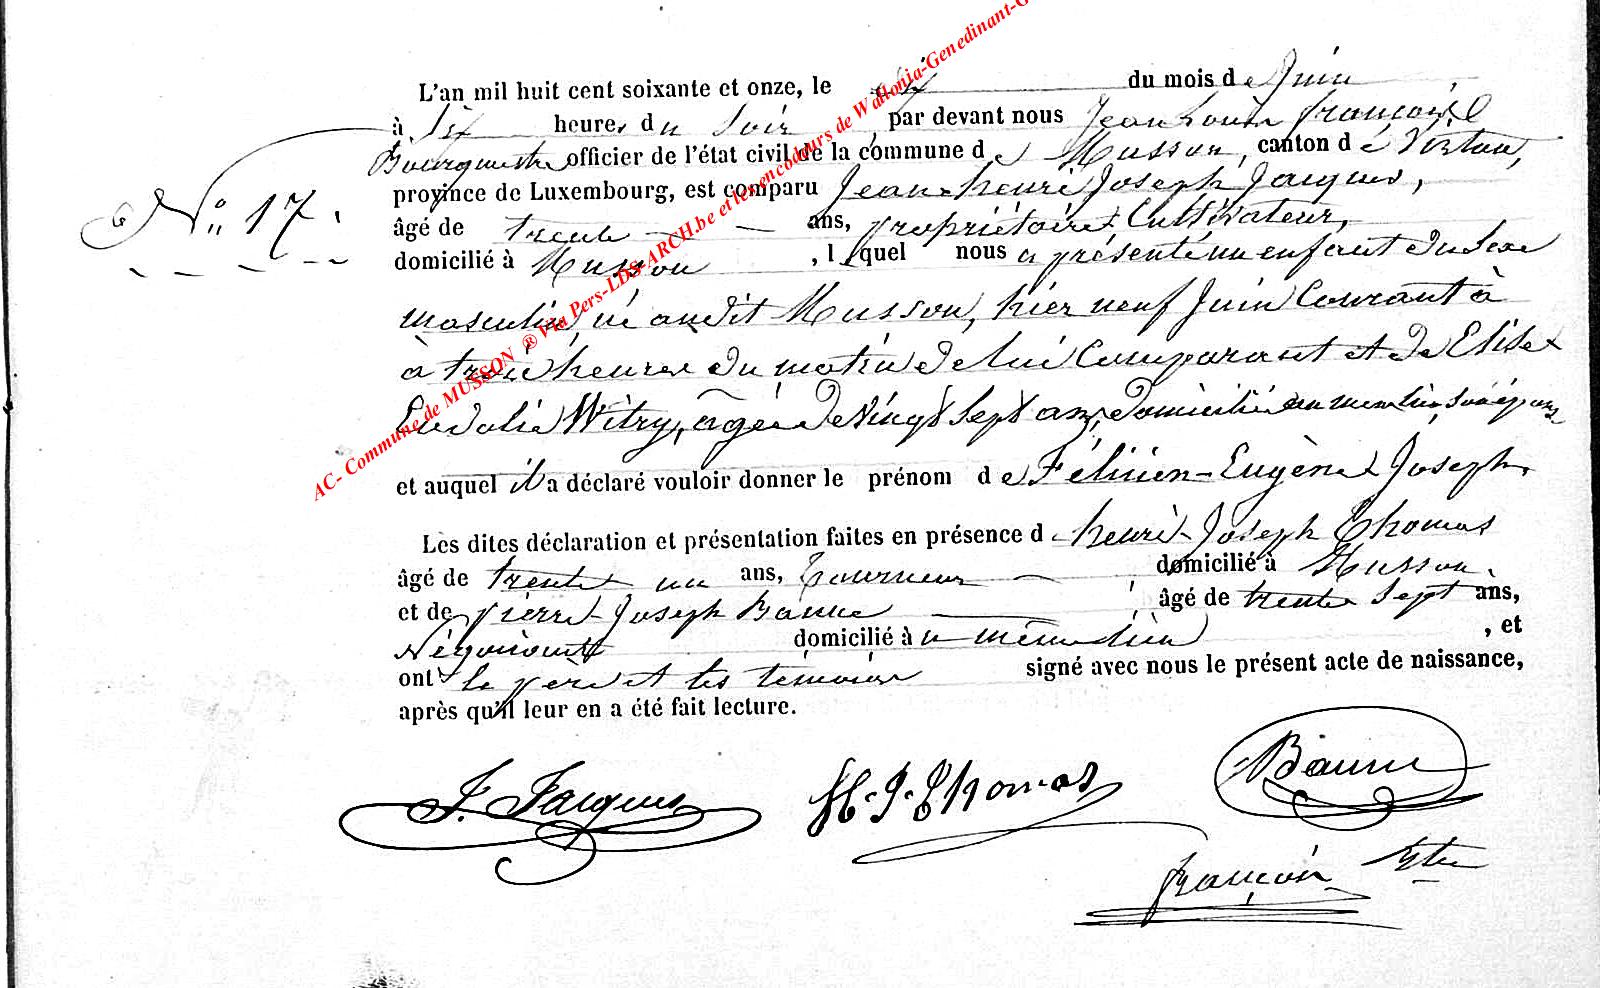 L'an mil huit cent soixante et onze, le dix du mois de Juin
à six heures du soir, par devant nous Jean Louis François,
Bourgmestre officier de l'état civil de la commune de Musson, canton de Virton,
province de Luxembourg, est comparu Jean-henri Joseph Jacques,
N° 17.
âgé de trente ans, propriétaire Cultivateur,
domicilié à Musson, lequel nous a présenté un enfant du sexe
masculin, né audit Musson, hier neuf Juin Courant à
à trois heures du matin de lui Comparant et de Elise
Eudalie Witry, agée de vingt sept ans, domiciliée au même lieu, son épouse
et auquel il a déclaré vouloir donner le prénom de Félicien-Eugène Joseph.
Les dites déclaration et présentation faites en présence de henri-Joseph Thomas
âgé de trente un ans, Tourneur domicilié à Musson.
et de pierre-Joseph Baune, âgé de trente sept ans,
Négociant domicilié à u même lieu, et
ont le père et les témoins signé avec nous le présent acte de naissance,
après qu'il leur en a été fait lecture.
J. Jacques H.J. Thomas Baune
françois
AC- Commune de MUSSON ® Via Pers-LDS-ARCH.be et les encodeurs de Wallonia-Genedinant-G